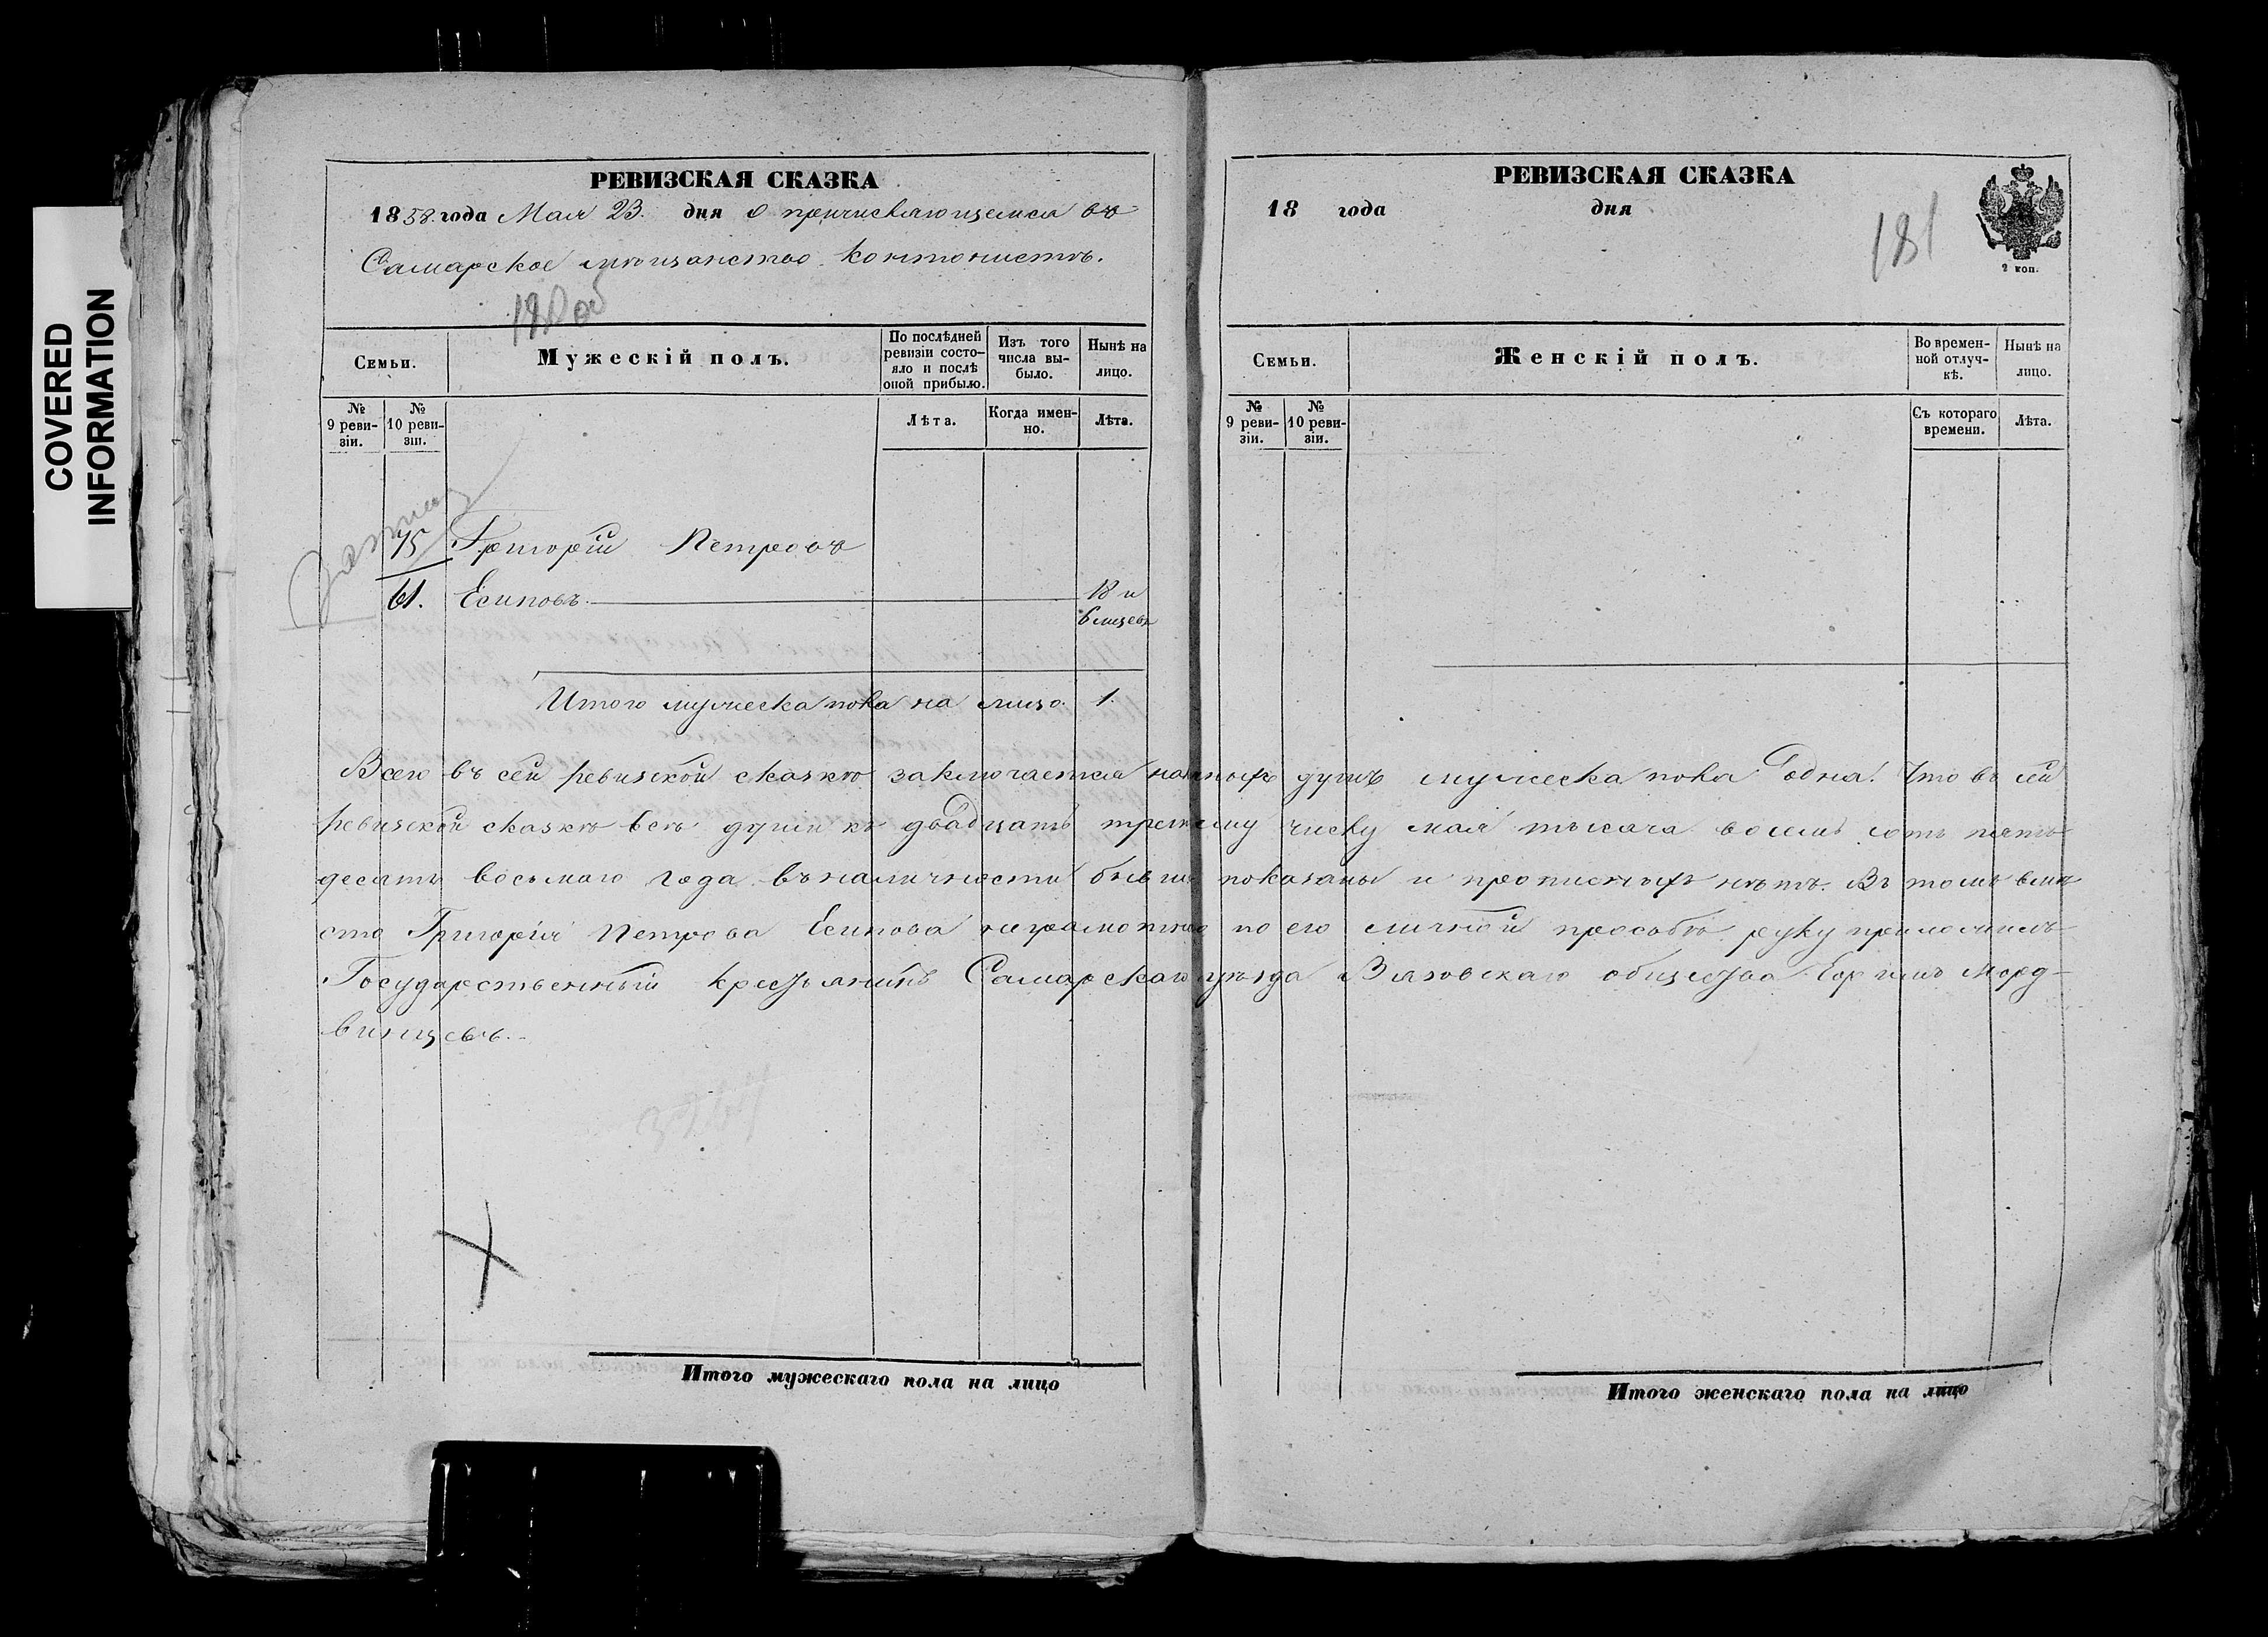 COVERED
INFORMATION
РЕВИЗСКАЯ СКАЗКА
1858 года Мая 23. дня о причисляющемся въ
Самарское мѣщанство Контонистѣ.
180 об
Семьи.
Мужескій полъ.
По послѣдней ревизіи состо-
яло и послѣ оной прибыло.
Изъ того числа вы-
было.
Нынѣ на лицо.
№ 9 реви-
зіи.
№ 10 реви-
зіи.
Лѣта.
Когда имен-
но.
Лѣта.
75 Григорій Петровъ
61. Есиповъ. 18 и
6 мцевъ
Итого мужеска пола на лицо. 1.
РЕВИЗСКАЯ СКАЗКА
18 года дня
181
2 коп.
Семьи.
Женскій полъ.
Во времен-
ной отлуч-
кѣ.
Нынѣ на лицо.
№ 9 реви-
зіи.
№ 10 реви-
зіи.
Съ котораго времени.
Лѣта.
Всего въ сей ревизской сказкѣ заключается наличныхъ душъ мужеска пола одна. Что въ сей
ревизской сказкѣ всѣ души къ двадцать третьему числу мая тысяча восемь сотъ пять-
десятъ восьмаго года въ наличности бывшія показаны и прописныхъ нѣтъ. Въ томъ вмѣ
сто Григорія Петрова Есипова неграмотнаго по его личной прозьбѣ руку приложилъ
Государственный крестьянинъ Самарскаго уѣзда Вязовскаго общества Морд-
винцевъ.
Итого мужескаго пола на лицо
Итого женскаго пола на лицо